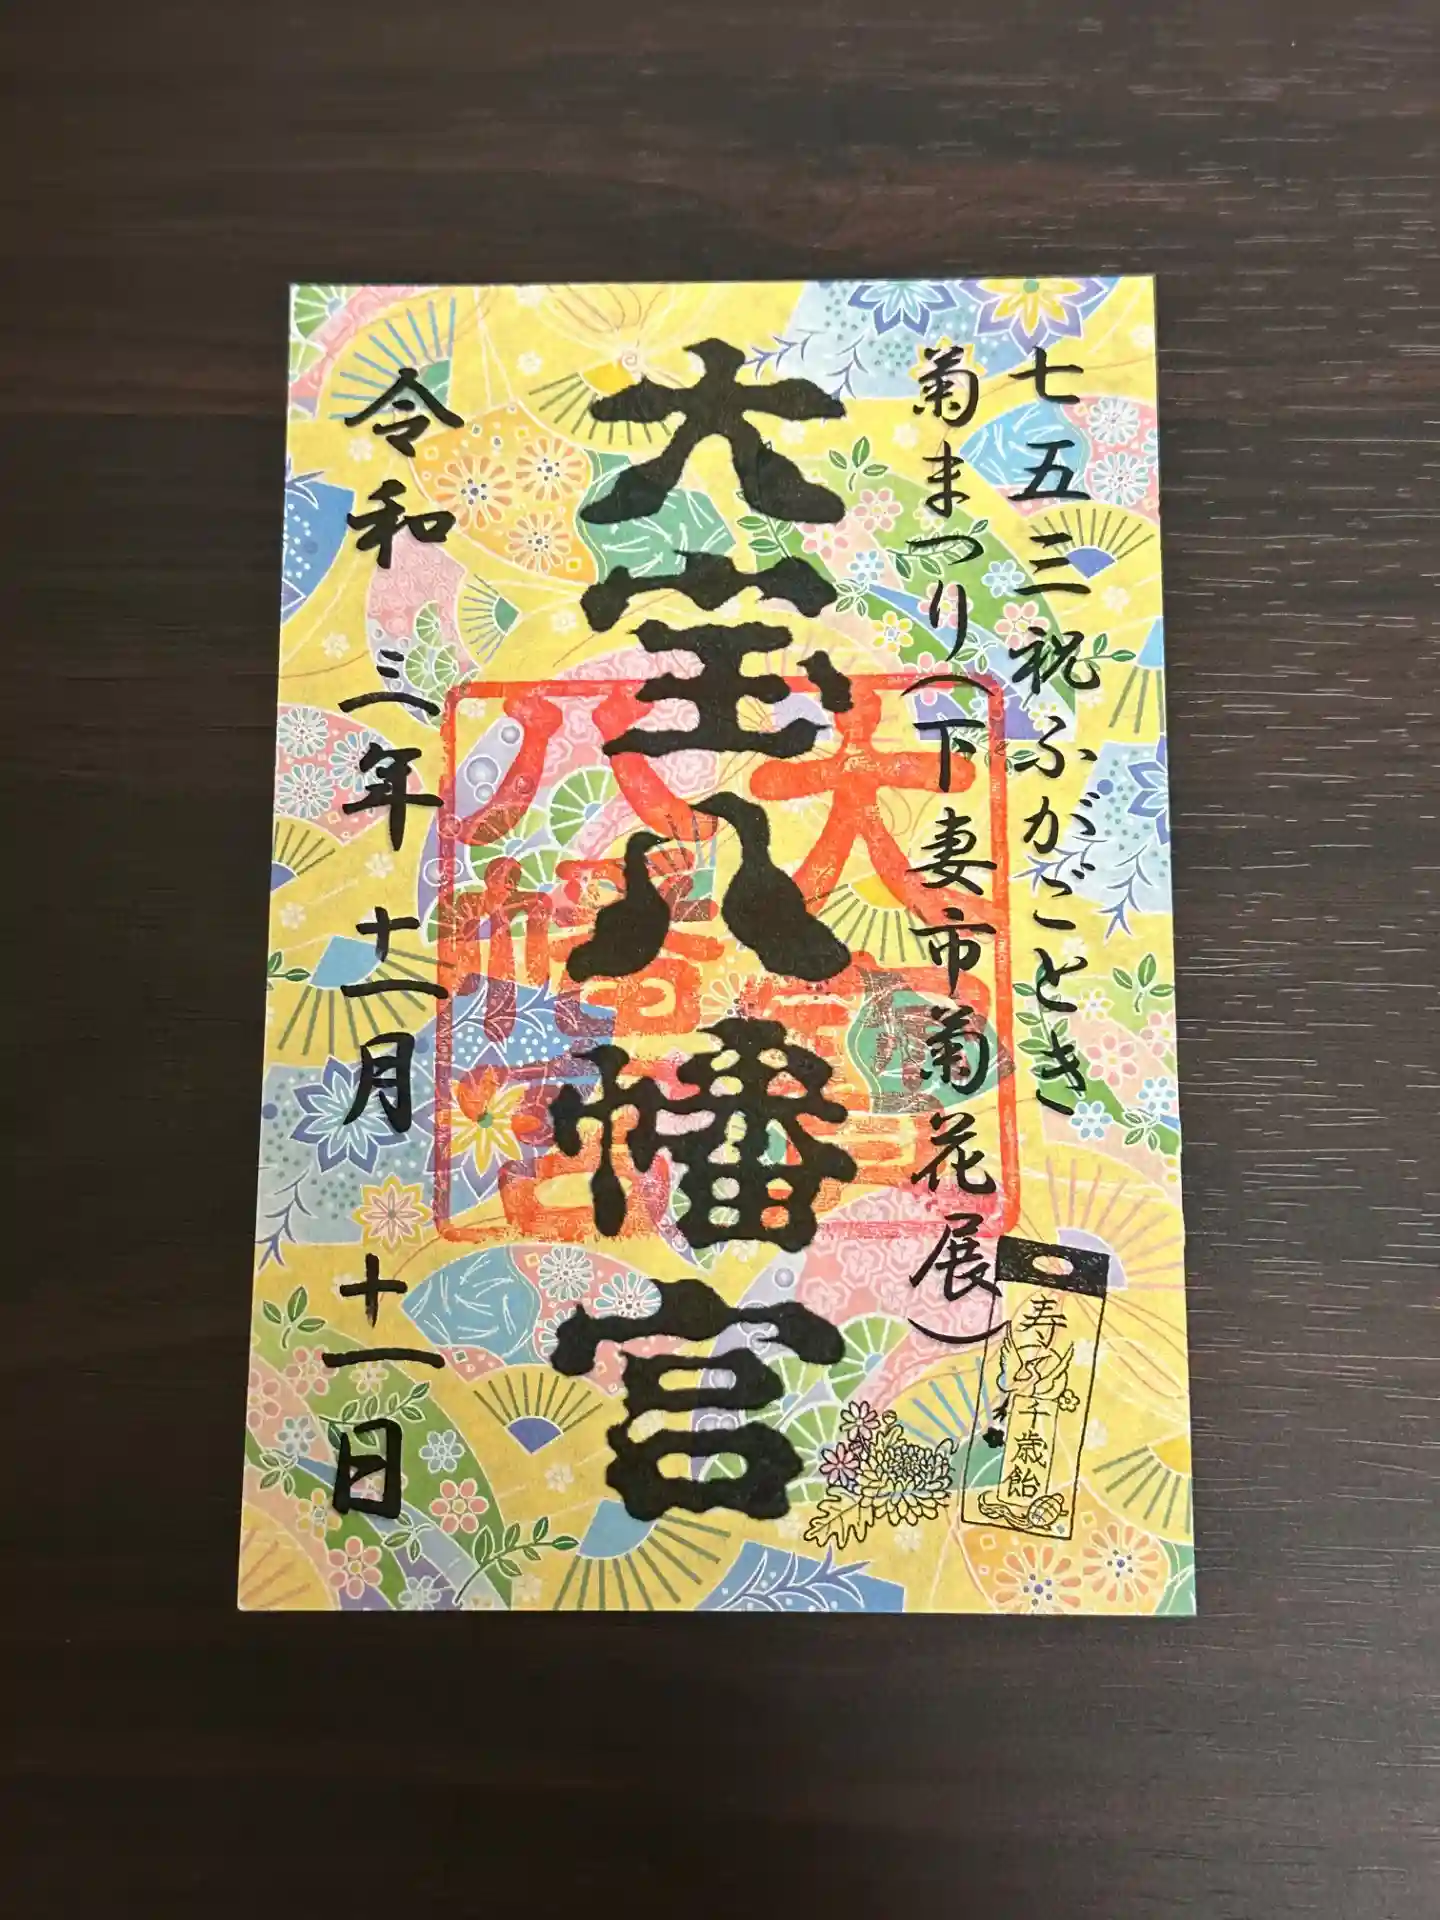 七五三祝ふがごとき
菊まつり(下妻市菊花展)
大宝八幡宮
令和三年十一月十一日
大宝八幡宮
寿
千歳飴